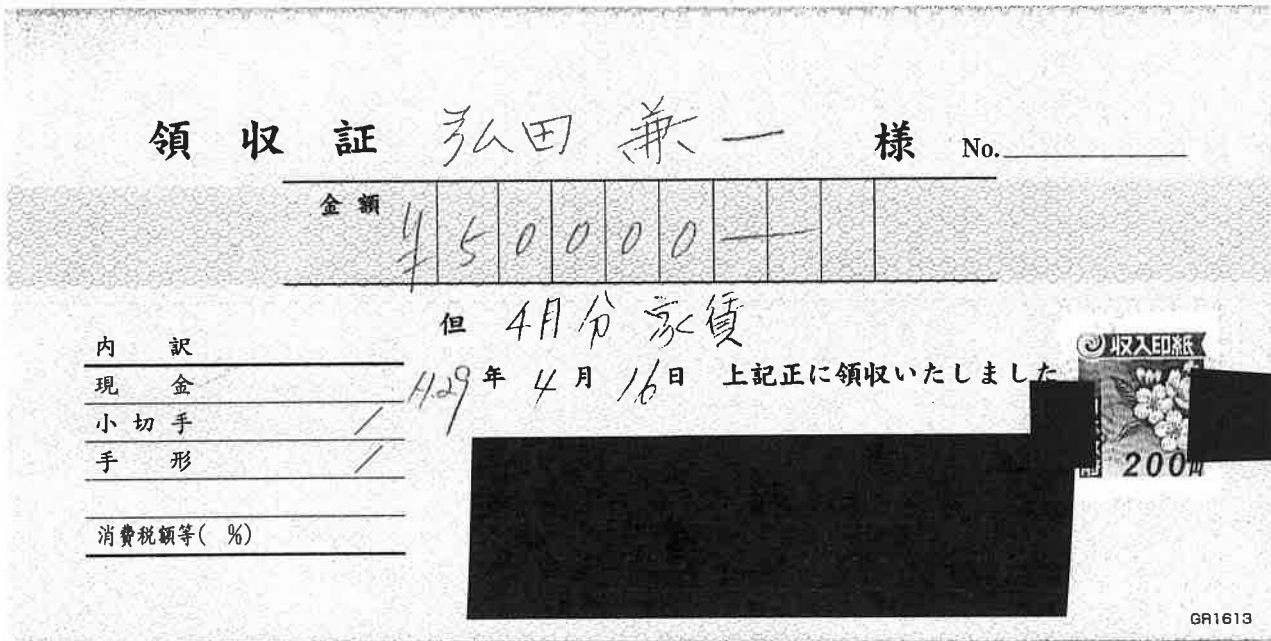 領収証 弘田 兼一 様 No.
金額 ¥50000—
但 4月分 家賃
H29年 4月 16日 上記正に領収いたしました
内訳
現金
小切手 /
手形 /
消費税額等( %)
収入印紙
200円
GR1613